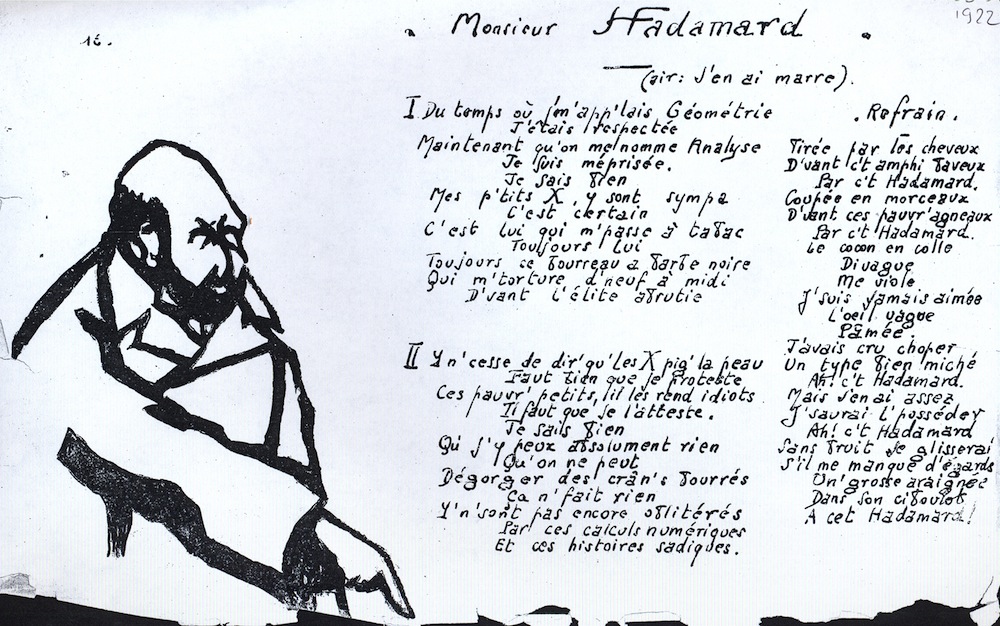 1922
16.
. Monsieur Hadamard .
(air: J'en ai marre).
I Du temps où j'm'app'lais Géométrie
J'étais respectée
Maintenant qu'on me nomme Analyse
Je suis méprisée.
Je sais bien
Mes p'tits X, y sont sympa
C'est certain
C'est lui qui m'passe à tabac
Toujours lui
Toujours ce bourreau a barbe noire
Qui m'torture d'neuf à midi
D'vant l'élite abrutie
II Y n'cesse de dir' qu'les X pig' la peau
Faut bien que je proteste
Ces pauvr' petits, il les rend idiots
Il faut que je l'atteste.
Je sais bien
Qu' j'y peux absolument rien
Qu'on ne peut
Dégorger des crân's bourrés
Ca n'fait rien
Y n'sont pas encore oblitérés
Par ces calculs numériques
Et ces histoires sadiques.
. Refrain .
Tirée par les cheveux
D'vant c't amphi baveux
Par c't Hadamard.
Coupée en morceaux
D'vant ces pauvr' agneaux
Par c't Hadamard.
Le cocon en colle
Divague
Me viole
J'suis jamais aimée
L'oeil vague
Pâmée.
J'avais cru choper
Un type bien miché
Ah! c't Hadamard.
Mais j'en ai assez
J'saurai l'posséder
Ah! c't Hadamard
Sans bruit je glisserai
S'il me manque d'égards
Un' grosse araignée
Dans son ciboulot
A cet Hadamard!